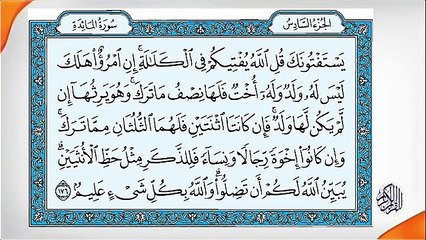 الجزء السادس
سورة المائدة
يَسْتَفْتُونَكَ قُلِ ٱللَّهُ يُفْتِيكُمْ فِى ٱلْكَلَـٰلَةِ ۚ إِنِ ٱمْرُؤٌا۟ هَلَكَ
لَيْسَ لَهُۥ وَلَدٌ وَلَهُۥٓ أُخْتٌ فَلَهَا نِصْفُ مَا تَرَكَ ۚ وَهُوَ يَرِثُهَآ إِن
لَّمْ يَكُن لَّهَا وَلَدٌ ۚ فَإِن كَانَتَا ٱثْنَتَيْنِ فَلَهُمَا ٱلثُّلُثَانِ مِمَّا تَرَكَ ۚ
وَإِن كَانُوٓا۟ إِخْوَةً رِّجَالًا وَنِسَآءً فَلِلذَّكَرِ مِثْلُ حَظِّ ٱلْأُنثَيَيْنِ ۗ
يُبَيِّنُ ٱللَّهُ لَكُمْ أَن تَضِلُّوا۟ ۗ وَٱللَّهُ بِكُلِّ شَىْءٍ عَلِيمٌۢ ١٧٦
القرآن الكريم